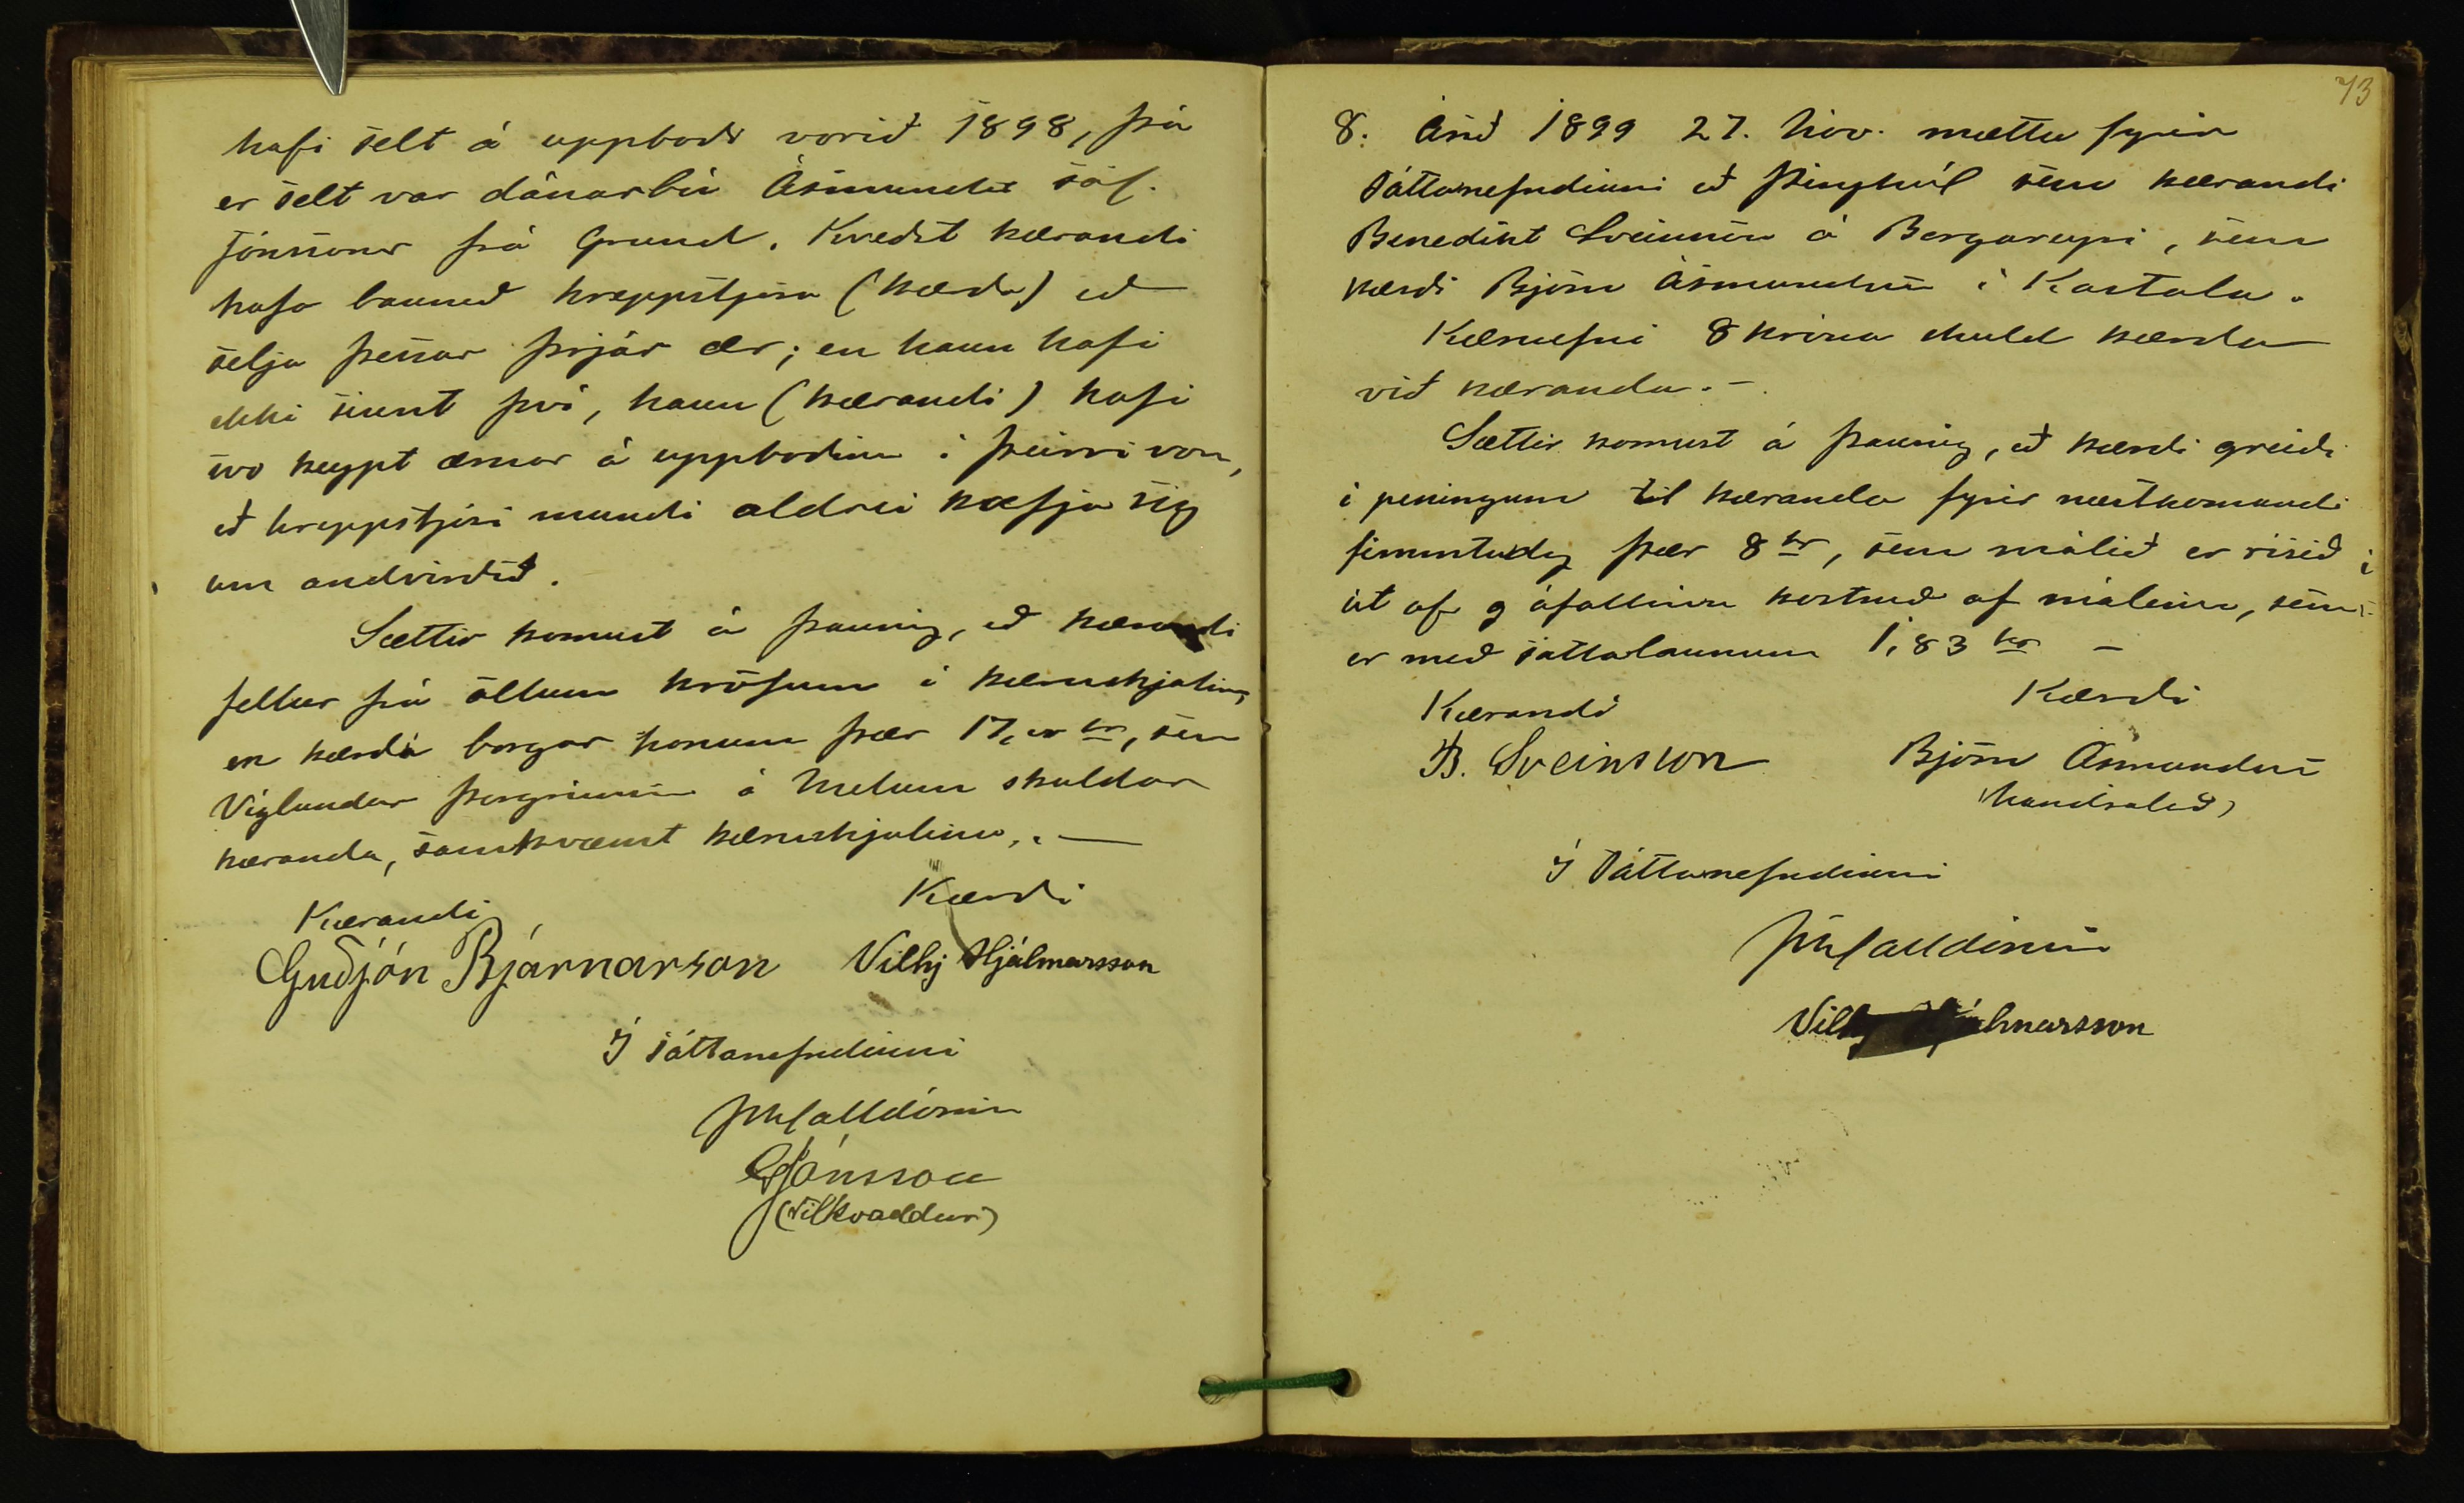 hafi selt á uppboði vorið 1898, þá
er selt var dánarbú Ásmundar sál.
Jónssonar frá Grund. Kveðst kærandi
hafa bannað hreppstjóra (kærða) að
selja þessar þrjár ær; en hann hafi
ekki sinnt því, hann (kærandi) hafi
svo keypt ærnar á uppboðinu í þeirri von,
að hreppstjóri mundi aldrei krefja sig
um andvirðið.
Sættir komust á þannig, að kærandi
fellur frá öllum kröfum í kæruskjalinu,
en kærði borgar honum þær 17,00 kr, sem
Víglundur Þorgrímsson á Melum skuldar
kæranda, samkvæmt kæruskjalinu. —
Kærandi
Kærði
Guðjón Bjarnarson Vilhj Hjálmarsson
Í sáttanefndinni
GJónsson
(tilkvaddur)
73
8. Árið 1899 27. Nóv. mættu fyrir
sáttanefndinni að Þinghól sem kærandi
Benedikt Sveinsson á Borgareyri, sem
kærði Björn Ásmundsson í Kastala.
Kæruefni 8 króna skuld kærða
við kæranda. –
Sættir komust á þannig, að kærði greiði
í peningum til kæranda fyrir næstkomandi
fimmtudag þær 8 kr, sem málið er risið
út af og áfallinn kostnað af málinu, sem
er með sáttalaunum 1,83 kr –
Kærandi
Kærði
B. Sveinsson Björn Ásmundsson
(handsalað)
Í sáttanefndinni
Vilhj Hjálmarsson